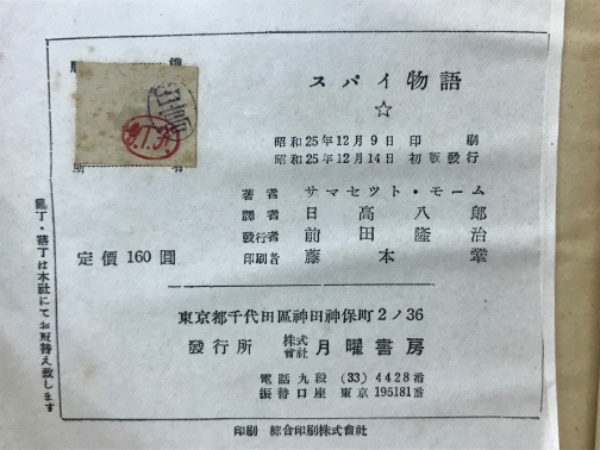 スパイ物語
☆
昭和25年12月9日 印刷
昭和25年12月14日 初版發行
著者 サマセツト・モーム
譯者 日高八郎
發行者 前田隆治
印刷者 藤本
定價160圓
東京都千代田區神田神保町2ノ36
發行所 株式會社 月曜書房
電話九段 (33) 4428番
振替口座 東京195181番
印刷 綜合印刷株式會社
亂丁・落丁は本社にてお取替え致します